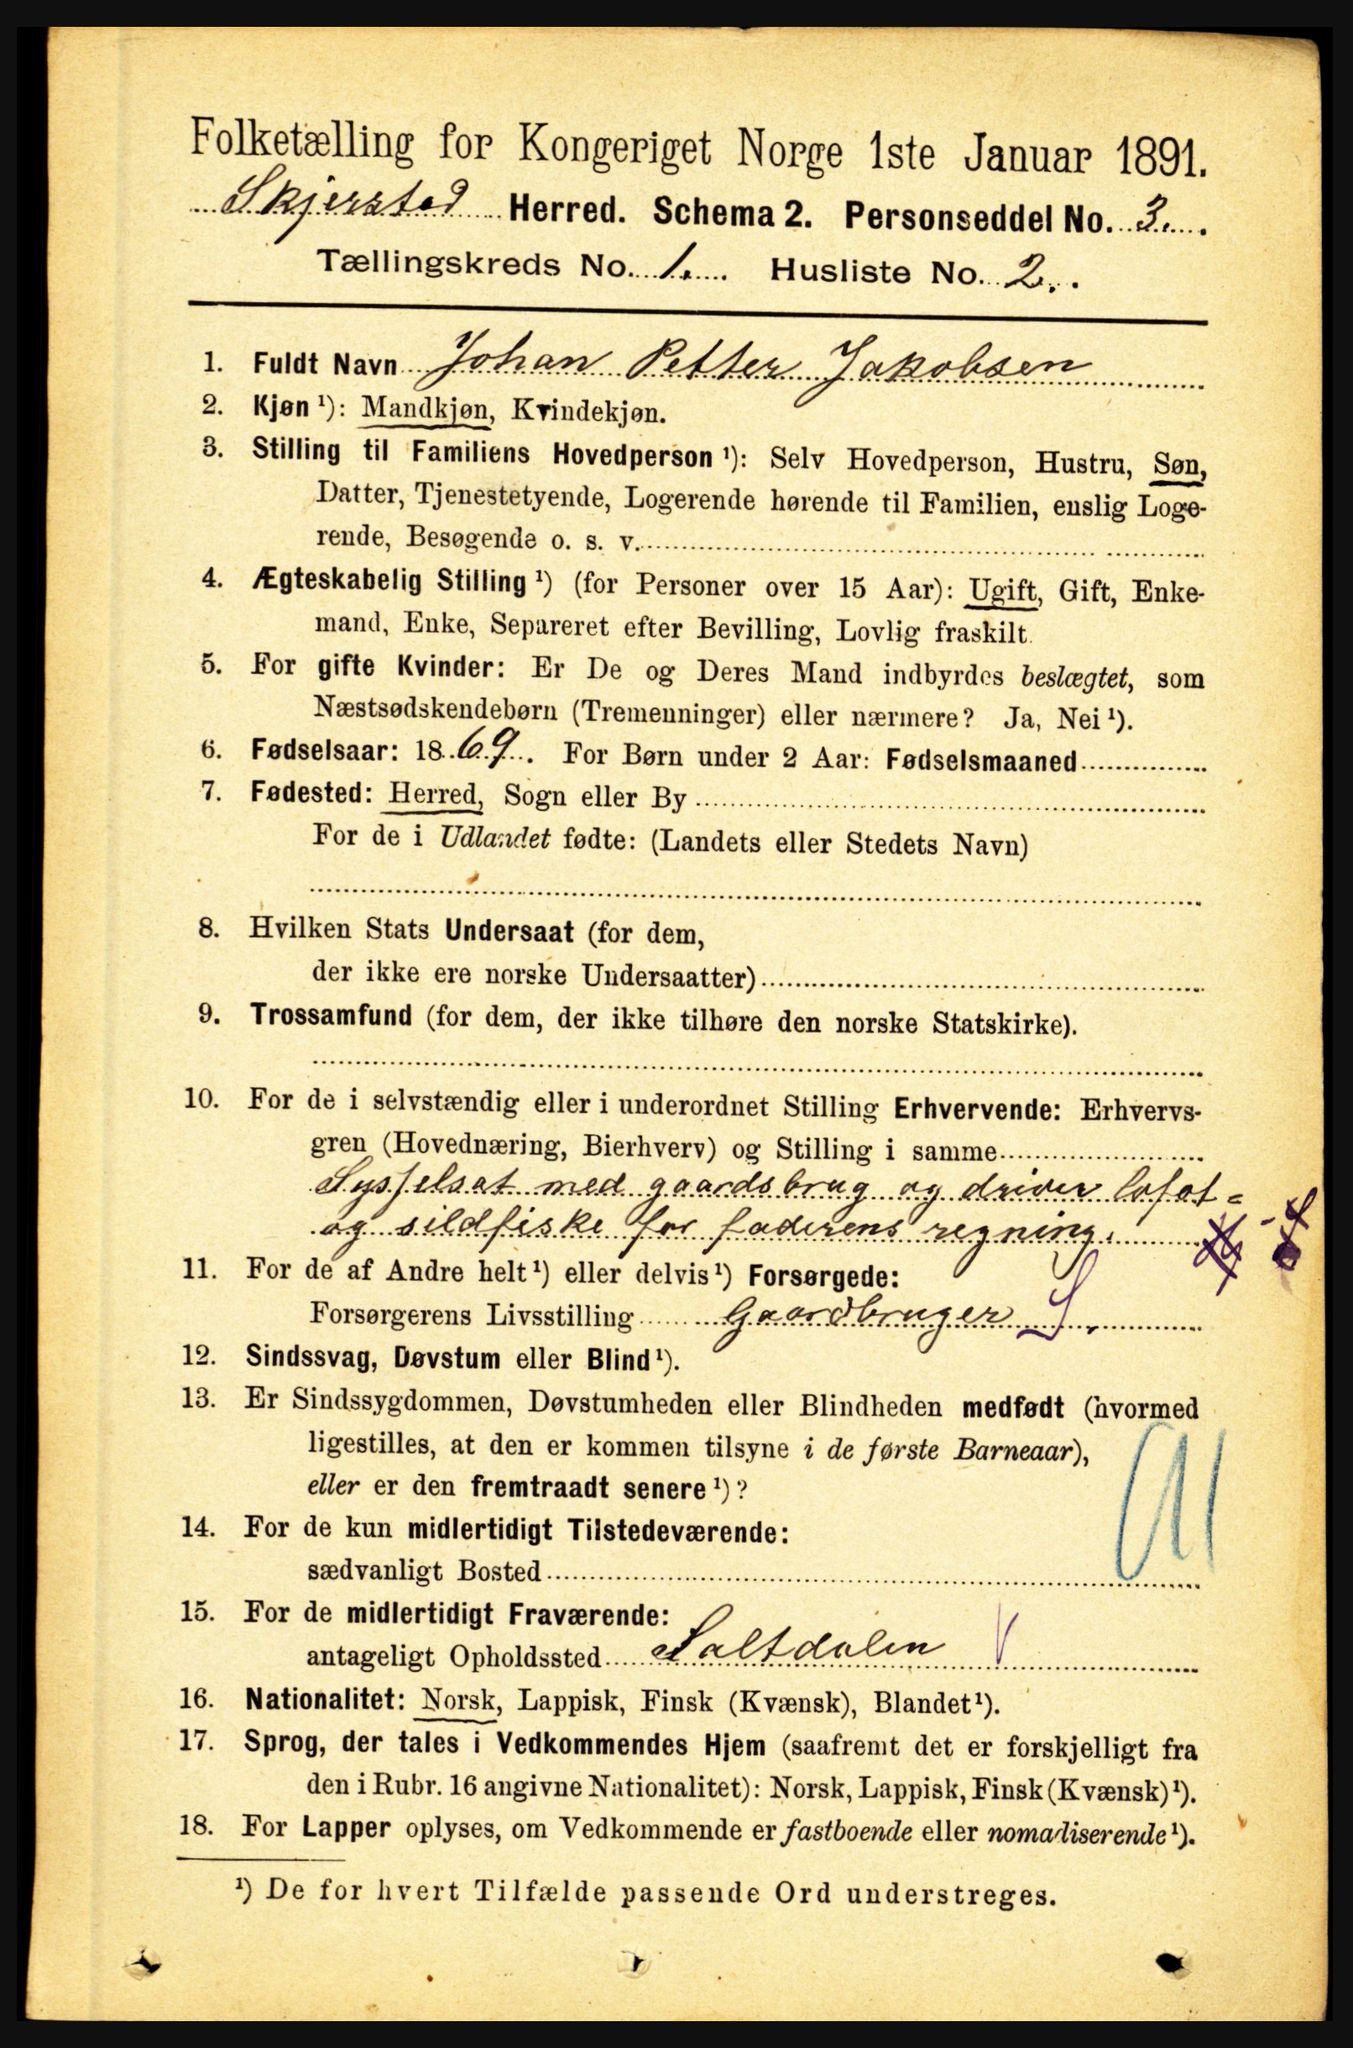 Folketælling for Kongeriget Norge 1ste Januar 1891.
Skjerstad Herred. Schema 2. Personseddel No. 3.
Tællingskreds No. 1. Husliste No. 2.
1. Fuldt Navn Johan Petter Jakobsen
2. Kjøn ¹): Mandkjøn, Kvindekjøn.
3. Stilling til Familiens Hovedperson ¹): Selv Hovedperson, Hustru, Søn,
Datter, Tjenestetyende, Logerende hørende til Familien, enslig Loge-
rende, Besøgende o. s. v.
4. Ægteskabelig Stilling ¹) (for Personer over 15 Aar): Ugift, Gift, Enke-
mand, Enke, Separeret efter Bevilling, Lovlig fraskilt.
5. For gifte Kvinder: Er De og Deres Mand indbyrdes beslægtet, som
Næstsødskendebørn (Tremenninger) eller nærmere? Ja, Nei ¹).
6. Fødselsaar: 1869. For Børn under 2 Aar: Fødselsmaaned
7. Fødested: Herred, Sogn eller By
For de i Udlandet fødte: (Landets eller Stedets Navn)
8. Hvilken Stats Undersaat (for dem,
der ikke ere norske Undersaatter)
9. Trossamfund (for dem, der ikke tilhøre den norske Statskirke).
10. For de i selvstændig eller i underordnet Stilling Erhvervende: Erhvervs-
gren (Hovednæring, Bierhverv) og Stilling i samme
Sysselsat med gaardsbrug og driver lofot=
og sildfiske for faderens regning.
11. For de af Andre helt ¹) eller delvis ¹) Forsørgede:
Forsørgerens Livsstilling Gaardbruger S.
12. Sindssvag, Døvstum eller Blind ¹).
13. Er Sindssygdommen, Døvstumheden eller Blindheden medfødt (hvormed
ligestilles, at den er kommen tilsyne i de første Barneaar),
eller er den fremtraadt senere ¹)?
14. For de kun midlertidigt Tilstedeværende:
sædvanligt Bosted
15. For de midlertidigt Fraværende:
antageligt Opholdssted Saltdalen
16. Nationalitet: Norsk, Lappisk, Finsk (Kvænsk), Blandet ¹).
17. Sprog, der tales i Vedkommendes Hjem (saafremt det er forskjelligt fra
den i Rubr. 16 angivne Nationalitet): Norsk, Lappisk, Finsk (Kvænsk) ¹).
18. For Lapper oplyses, om Vedkommende er fastboende eller nomadiserende ¹).
¹) De for hvert Tilfælde passende Ord understreges.